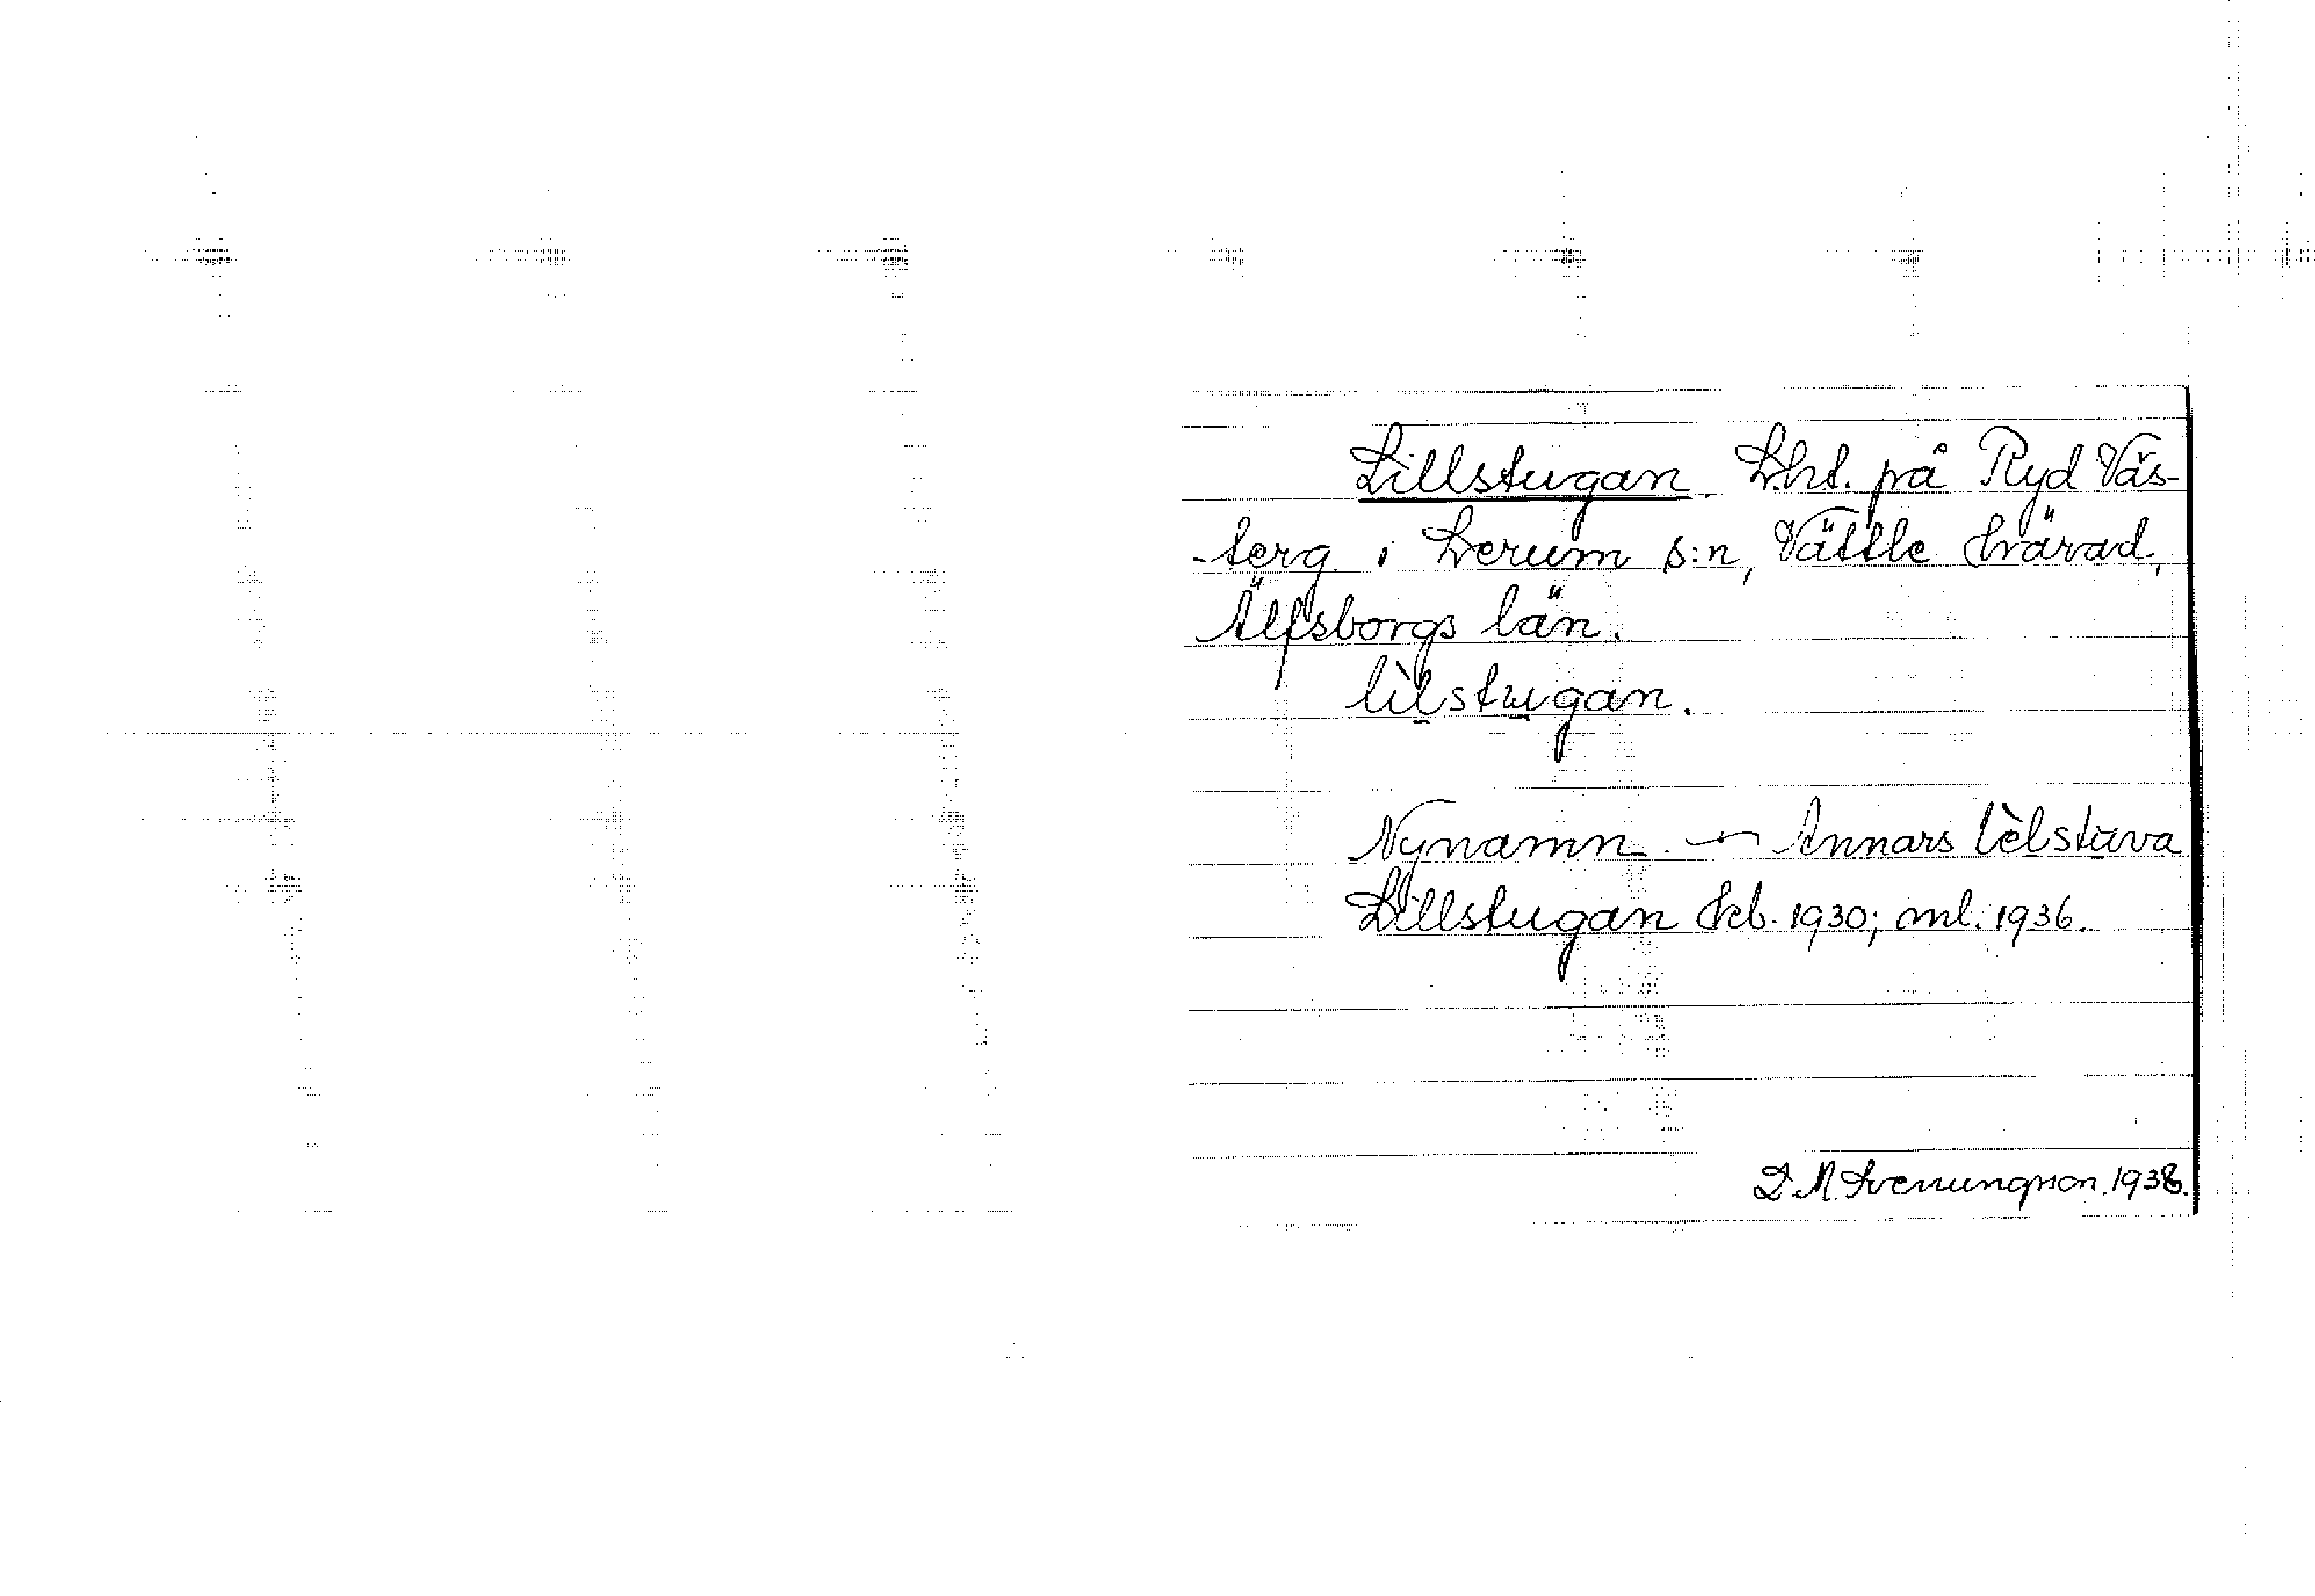 Lillstugan. Lht. på Ryd Väs-
-terg. i Lerum s:n, Vättle härad,
Älfsborgs län.
lìlstugan.
Nynamn. — Annars lèlstuva
Lillstugan kb. 1930; ml. 1936.
D. M. Svenungsson. 1938.